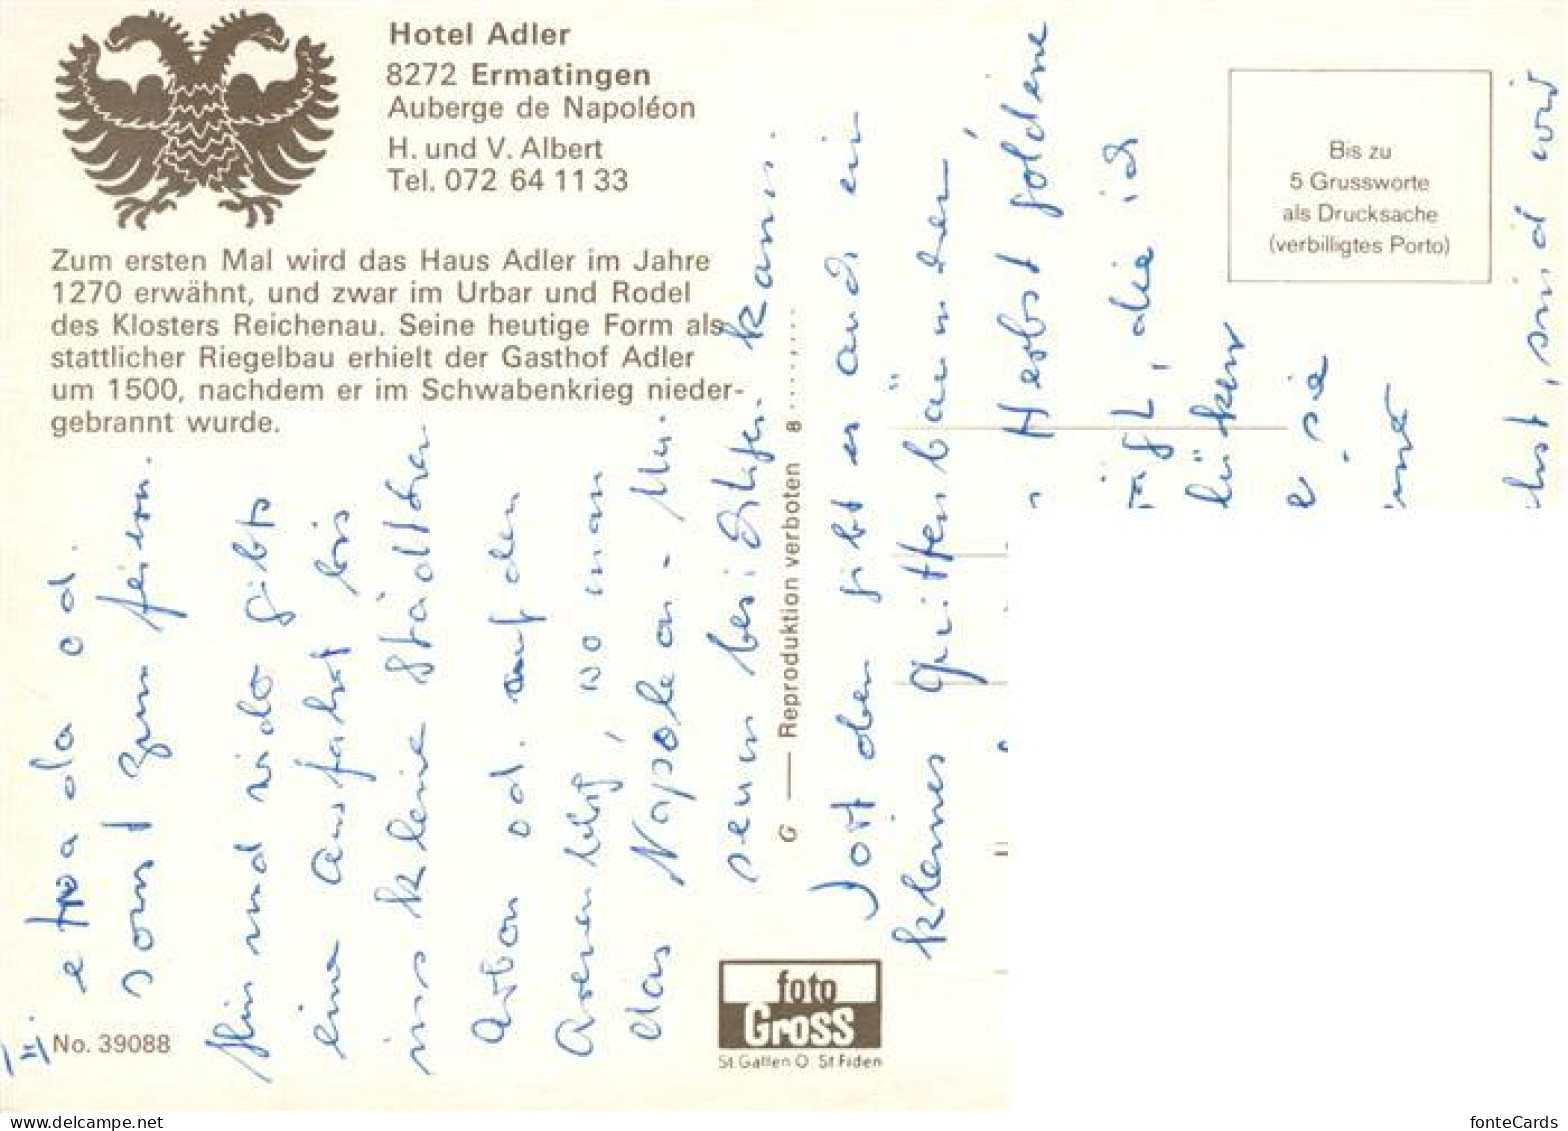 Hotel Adler
8272 Ermatingen
Auberge de Napoléon
H. und V. Albert
Tel. 072 64 11 33
Zum ersten Mal wird das Haus Adler im Jahre
1270 erwähnt, und zwar im Urbar und Rodel
des Klosters Reichenau. Seine heutige Form als
stattlicher Riegelbau erhielt der Gasthof Adler
um 1500, nachdem er im Schwabenkrieg nieder-
gebrannt wurde.
Bis zu
5 Grussworte
als Drucksache
(verbilligtes Porto)
II.
etwa da od.
sonst zum feiern.
Hin und wieder gibts
eine Ausfahrt bis
ins kleine Städtchen
Arbon od. auf den
Arenenberg, wo man
das Napoleon-Mu-
seum besichtigen kann.
Dort oben gibt es auch ein
kleines Quittenbäumchen
Herbst goldene
die ich
sie
sind wir
G — Reproduktion verboten 8
No. 39088
foto
Gross
St. Gallen O St Fiden
www.delcampe.net
fonteCards